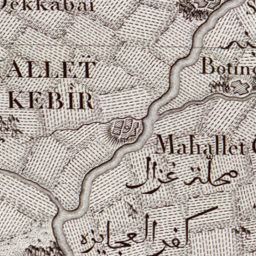 Dekkabal
ALLET
KEBIR
Botin
Mahallet
محلة غزال
كفر العجايزه